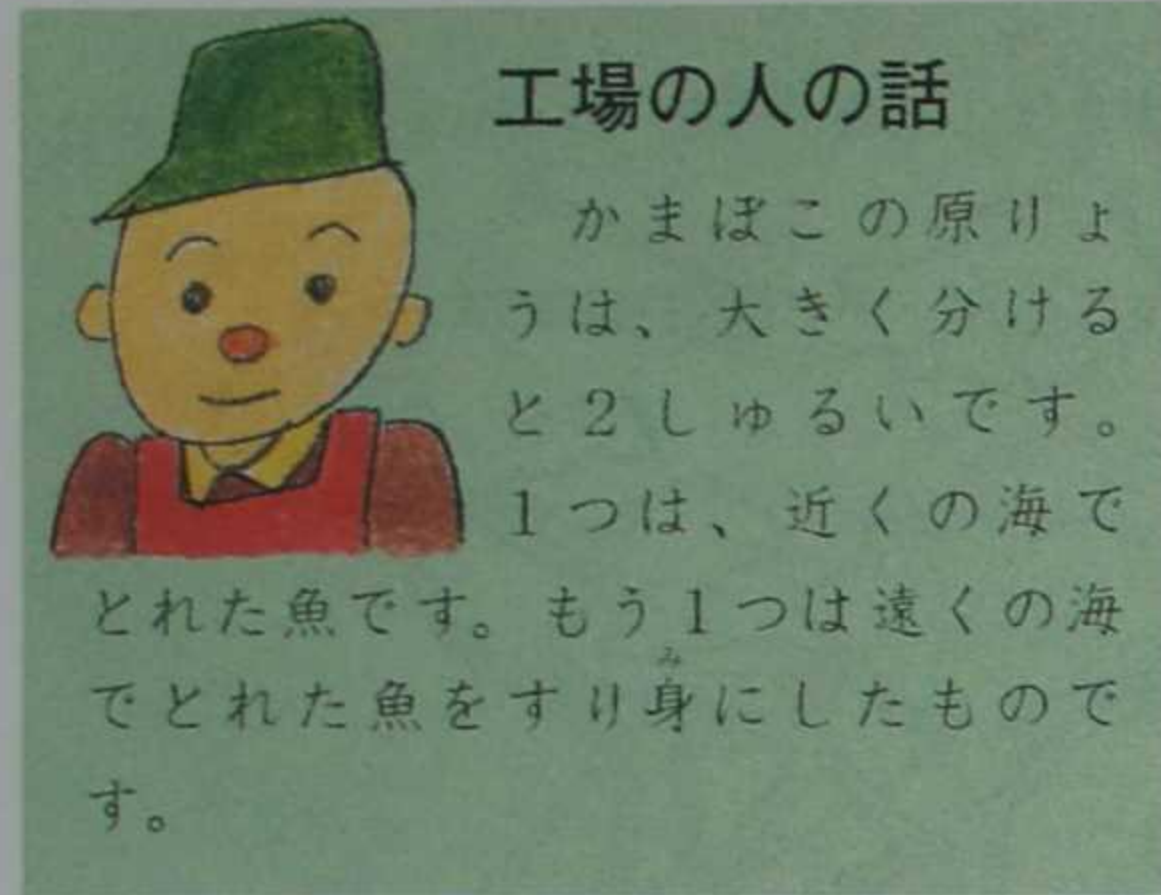 工場の人の話
かまぼこの原りょ
うは、大きく分ける
と2しゅるいです。
1つは、近くの海で
とれた魚です。もう1つは遠くの海
み
でとれた魚をすり身にしたもので
す。